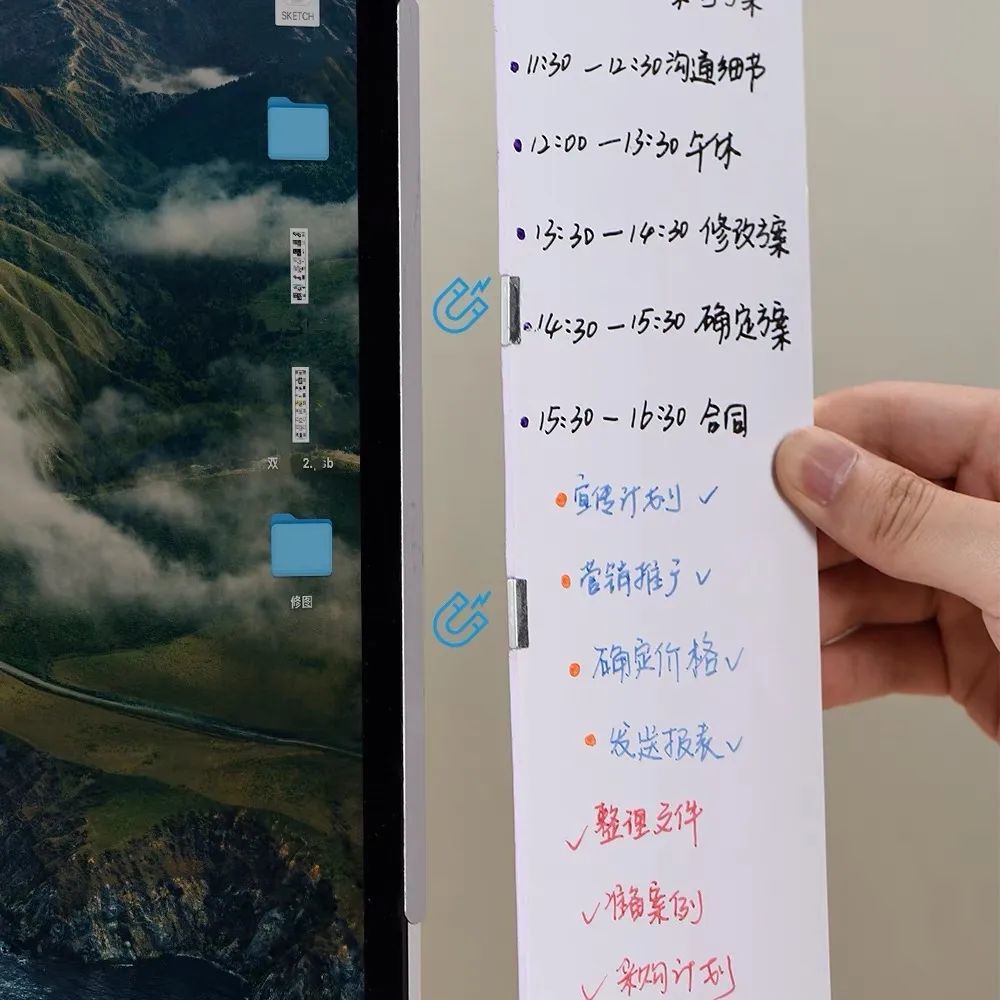 SKETCH
双 2. sb
修图
11:30 — 12:30 沟通细节
12:00 — 13:30 午休
13:30 — 14:30 修改方案
14:30 — 15:30 确定方案
15:30 — 16:30 合同
宣传计划 ✓
营销推广 ✓
确定价格 ✓
发送报表 ✓
✓ 整理文件
✓ 准备案例
✓ 采购计划